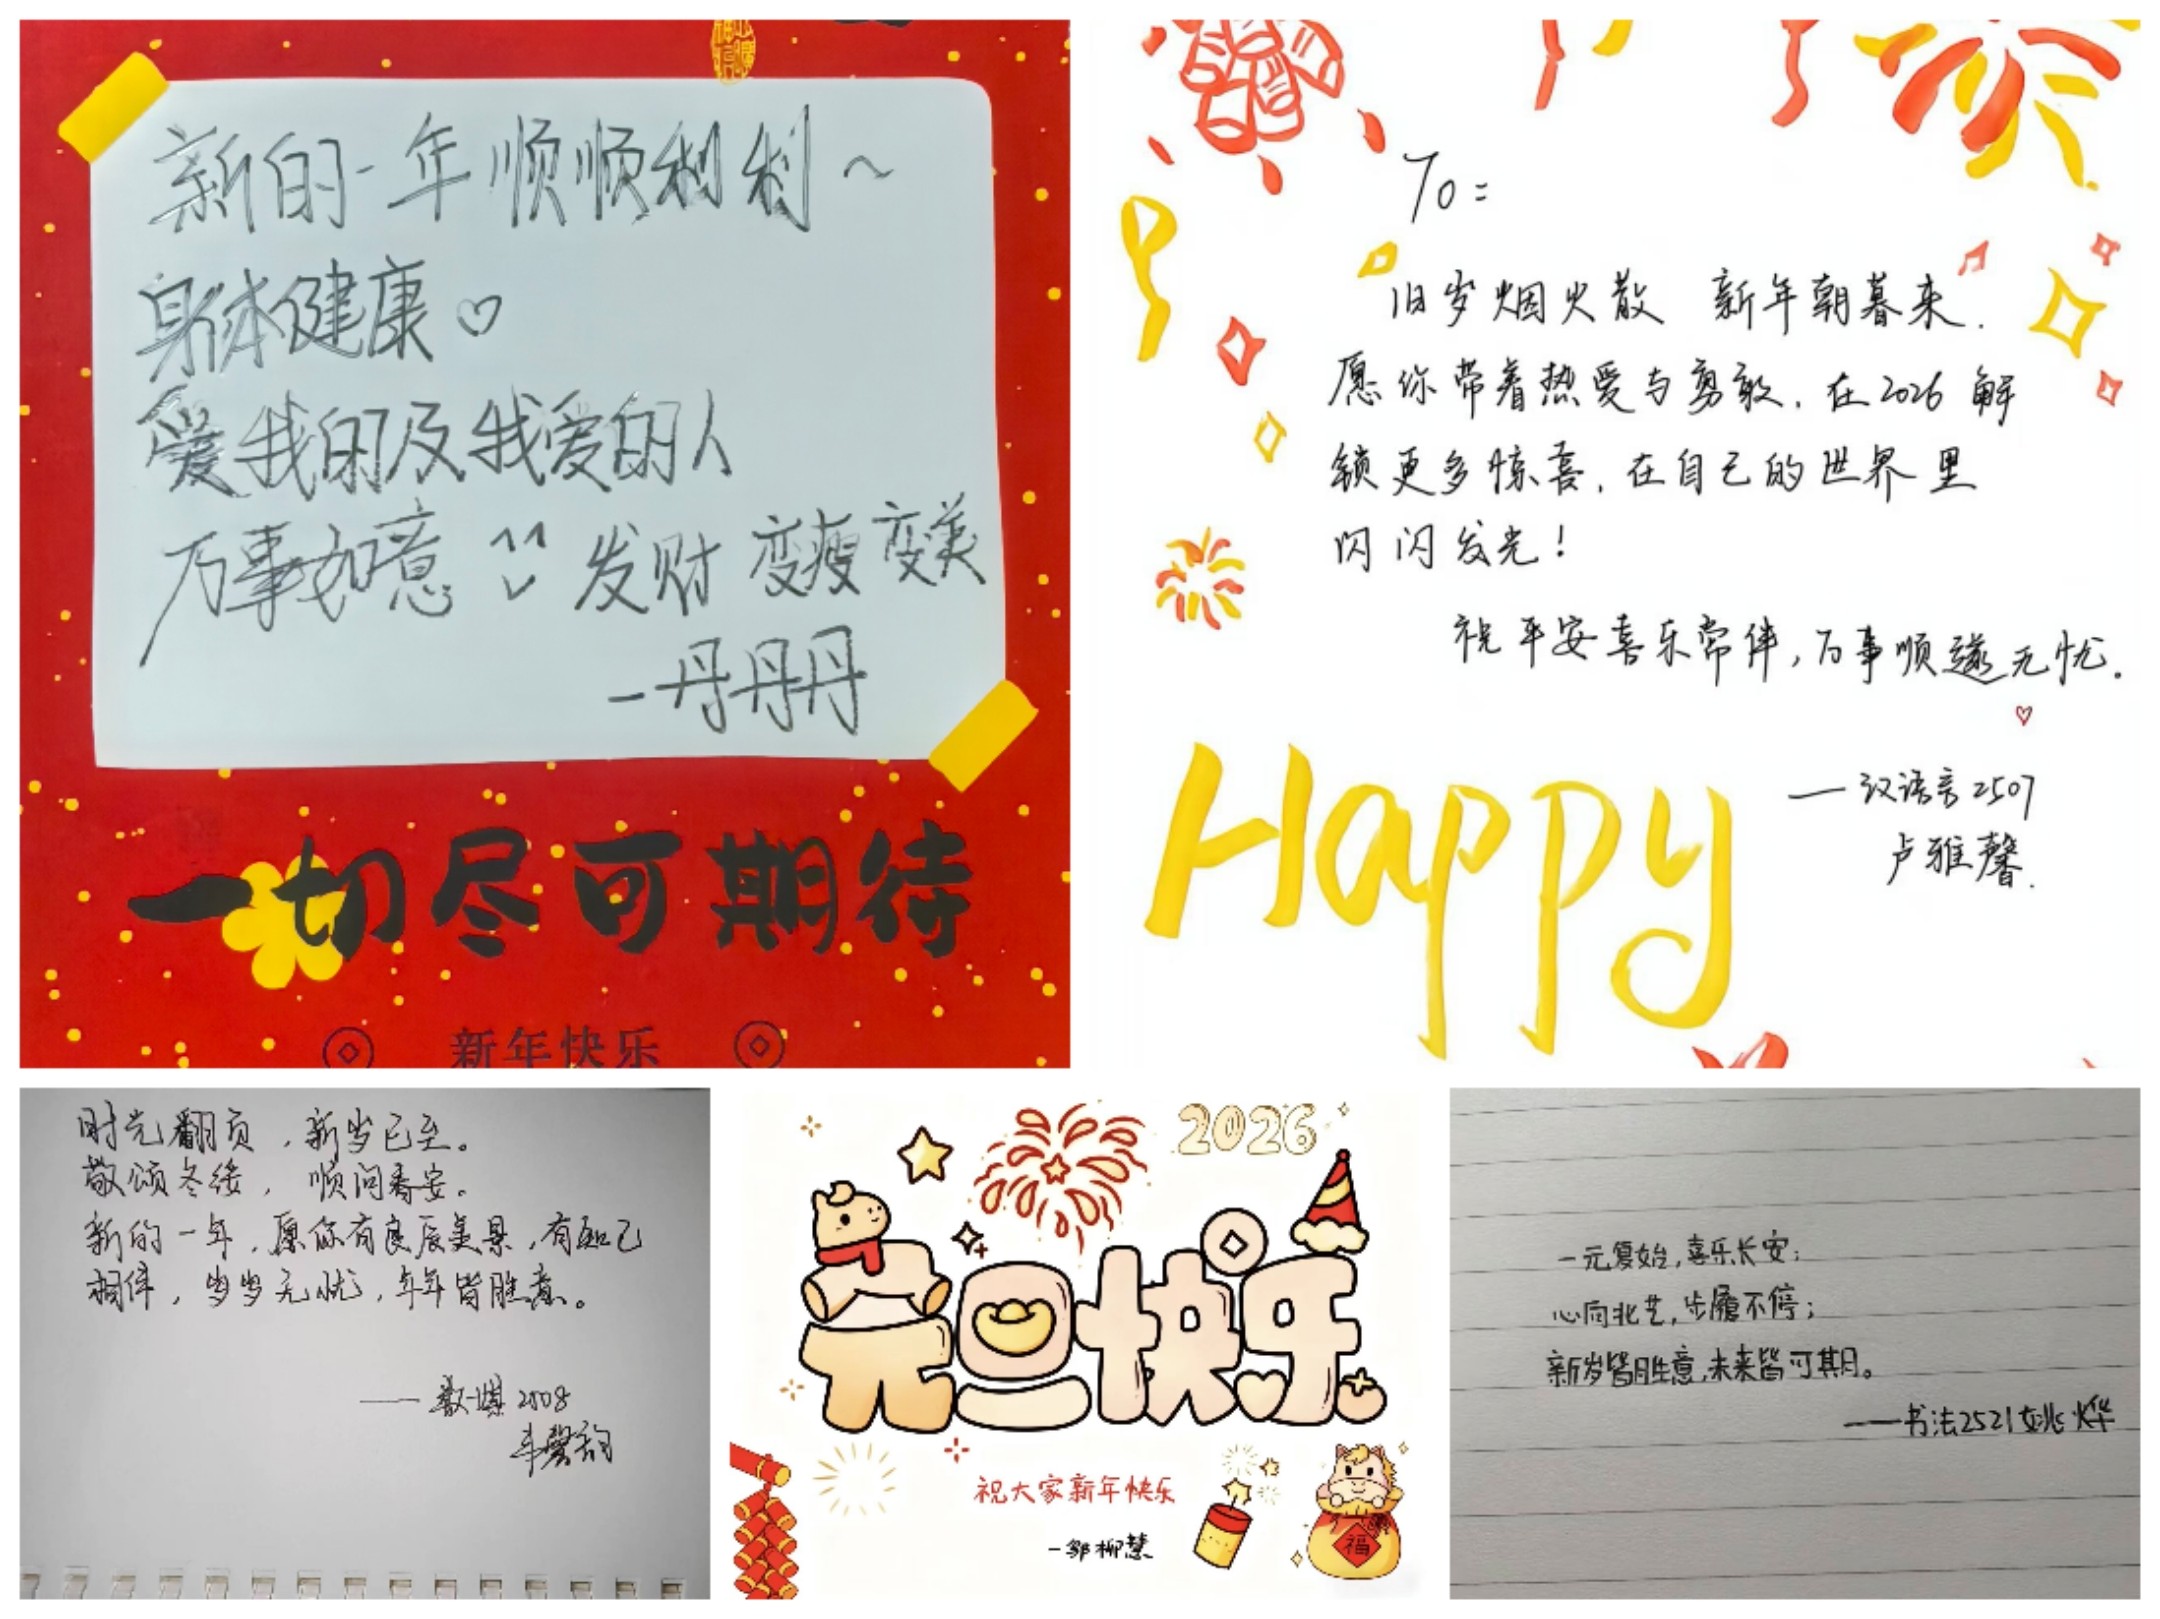 新的一年顺顺利利~
身体健康♡
爱我的及我爱的人
万事如意 发财 变瘦 变美
-丹丹丹
一切尽可期待
新年快乐
To:
旧岁烟火散 新年朝暮来.
愿你带着热爱与勇敢.在2026解
锁更多惊喜.在自己的世界里
闪闪发光!
祝平安喜乐常伴,万事顺遂无忧.
Happy
——汉语言2507
卢雅馨.
时光翻页,新岁已至。
敬颂冬绥,顺问春安。
新的一年,愿你有良辰美景,有知己
相伴,岁岁无忧,年年皆胜意。
2508
2026
元旦快乐
祝大家新年快乐
-邹柳慧
福
一元复始,喜乐长安;
心向北艺,步履不停;
新岁皆胜意,未来皆可期。
——书法2521姚烨